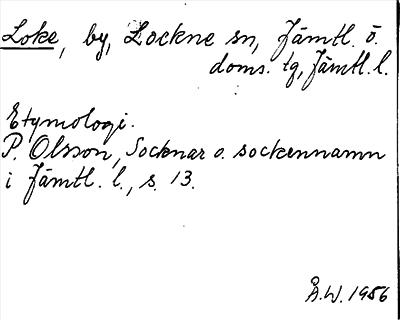 Loke, by, Lockne sn, Jämtl. ö.
doms. tg, Jämtl. l.
Etymologi.
P. Olsson, Socknar o. sockennamn
i Jämtl. l., s. 13.
Å.W. 1956